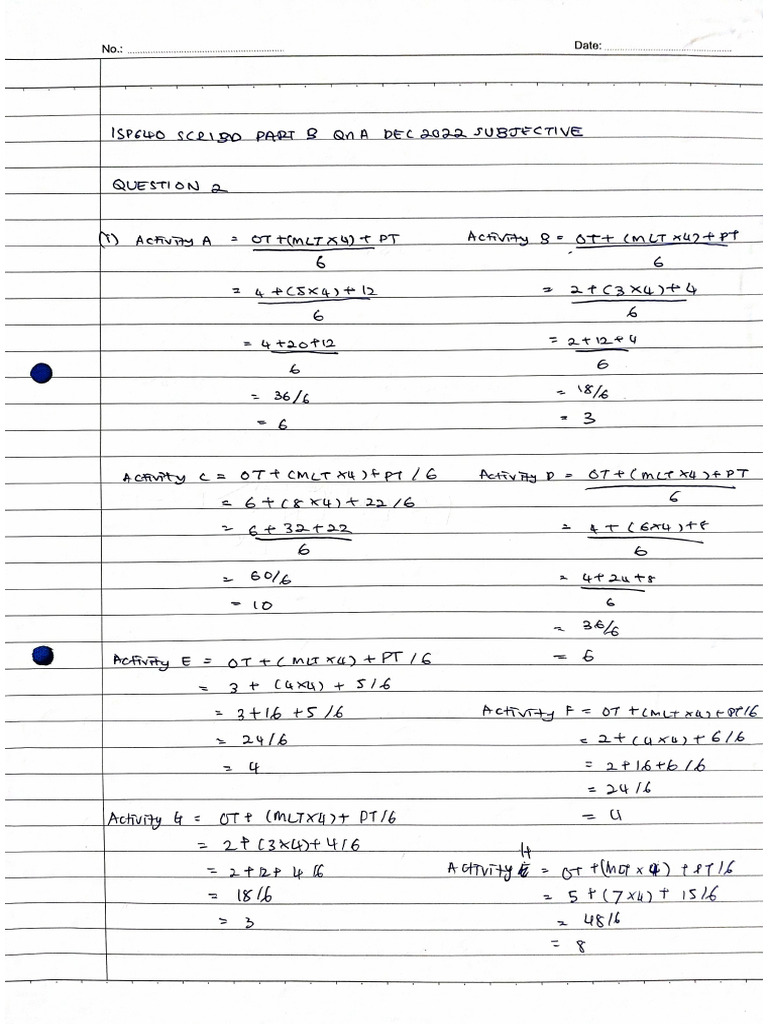 No.: Date:
ISP640 SCRIBD PART B QnA DEC 2022 SUBJECTIVE
QUESTION 2
(1) Activity A = OT+(MLT×4)+PT
6
= 4+(5×4)+12
6
= 4+20+12
6
= 36/6
= 6
Activity B = OT+(MLT×4)+PT
6
= 2+(3×4)+4
6
= 2+12+4
6
= 18/6
= 3
Activity C = OT+(MLT×4)+PT/6
= 6+(8×4)+22/6
= 6+32+22
6
= 60/6
= 10
Activity D = OT+(MLT×4)+PT
6
= 4+(6×4)+8
6
= 4+24+8
6
= 36/6
= 6
Activity E = OT+(MLT×4)+PT/6
= 3+(4×4)+5/6
= 3+16+5/6
= 24/6
= 4
Activity F = OT+(MLT×4)+PT/6
= 2+(4×4)+6/6
= 2+16+6/6
= 24/6
= 4
Activity G = OT+(MLT×4)+PT/6
= 2+(3×4)+4/6
= 2+12+4/6
= 18/6
= 3
Activity H = OT+(MLT×4)+PT/6
= 5+(7×4)+15/6
= 48/6
= 8